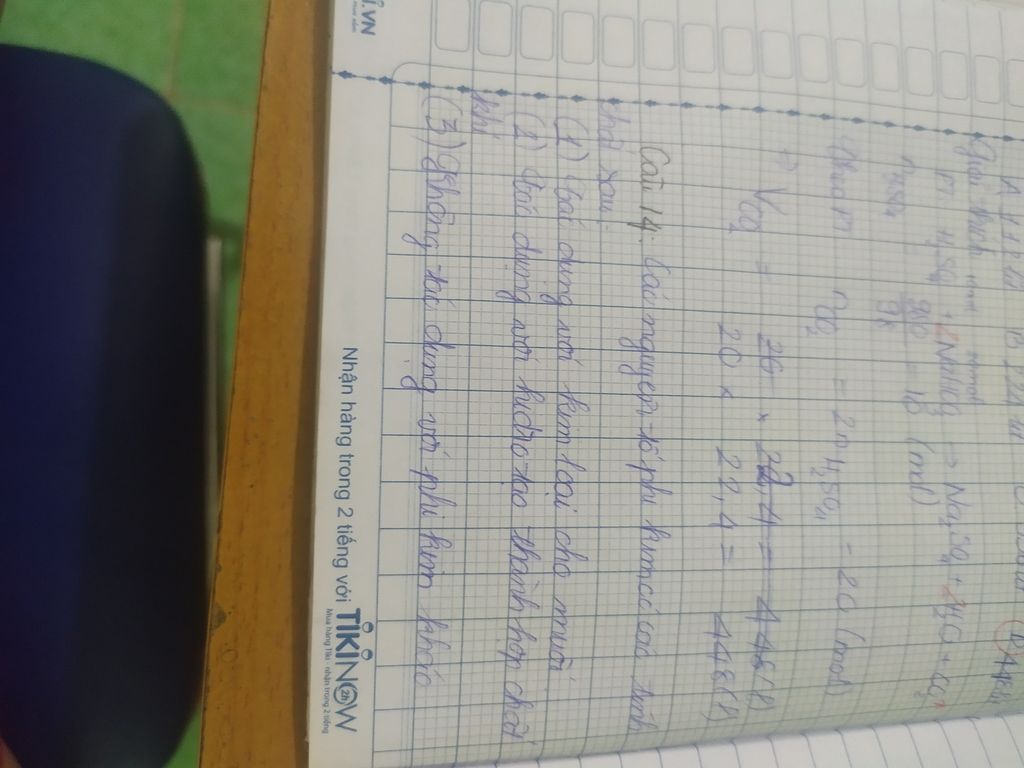 Giải thích
H₂SO₄ + 2NaHCO₃ → Na₂SO₄ + 2H₂O + 2CO₂
= 10 (mol)
nCO₂ = 2nH₂SO₄ = 20 (mol)
⇒ VCO₂ = 26 × 22,4 = 448 (l)
20 × 22,4 = 448 (l)
Câu 14: Các nguyên tố phi kim có các tính
chất sau:
(1) tác dụng với kim loại cho muối
(2) tác dụng với hidro tạo thành hợp chất
khí
(3) Không tác dụng với phi kim khác
Nhận hàng trong 2 tiếng với TIKINOW 2h
Mua hàng Tiki - nhận trong 2 tiếng
i.VN